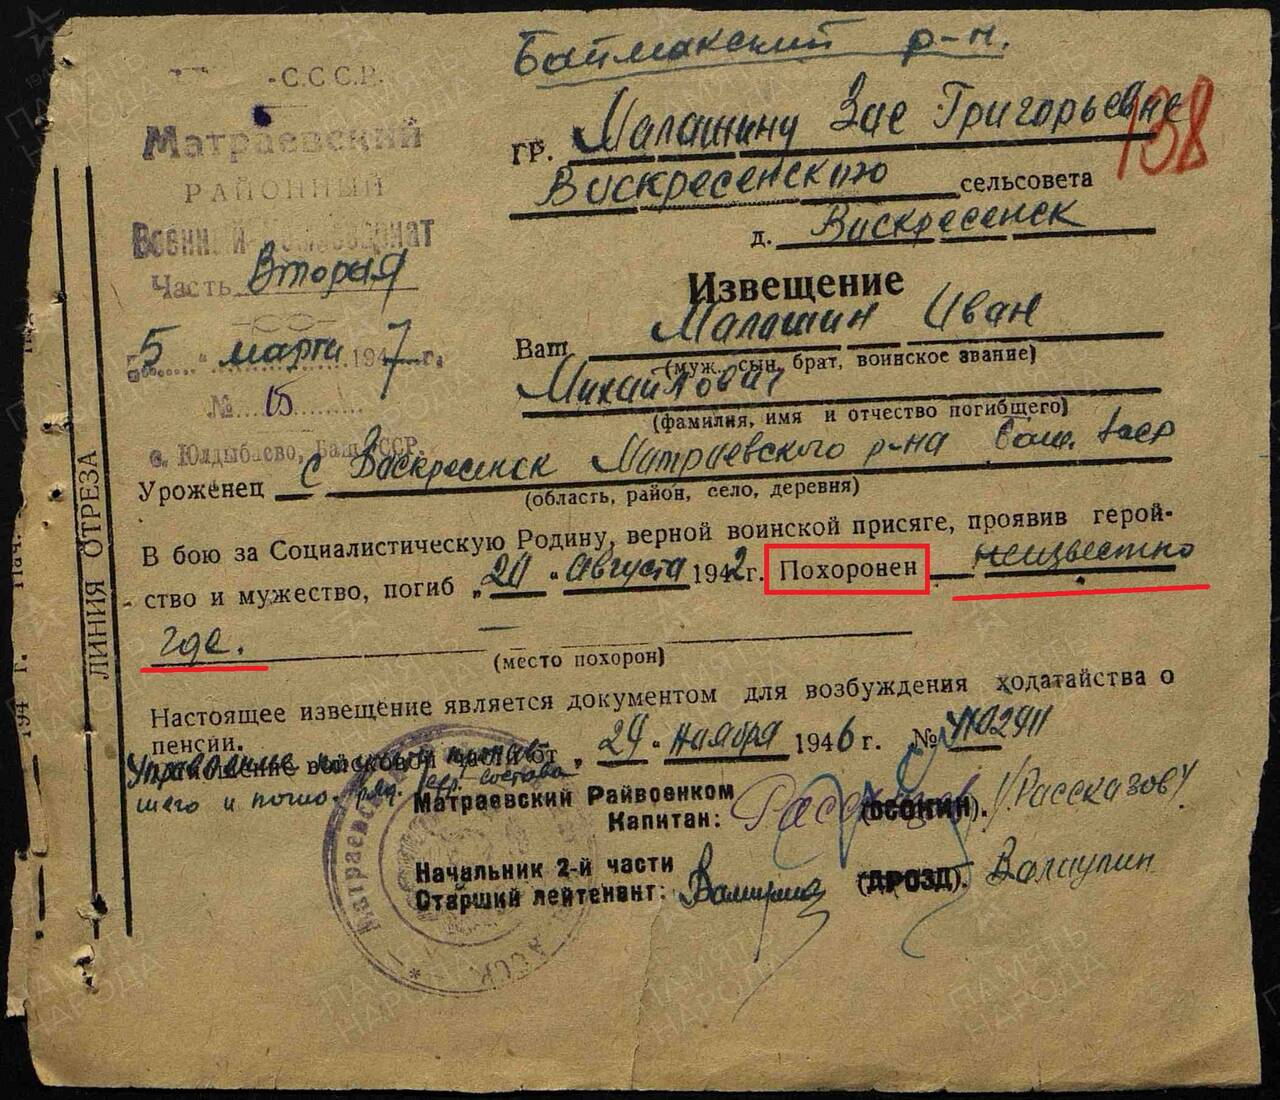 Баймакский р-н.
138
-С.С.С.Р.
Матраевский
РАЙОННЫЙ
Военный Комиссариат
Часть Вторая
5 " марта 1947 г.
№ 15
с. Юлдыбаево, Баш.АССР.
гр. Малашину Зае Григорьевне
Васкресенского сельсовета
д. Васкресенск
Извещение
Ваш Малашин Иван
(муж, сын, брат, воинское звание)
Михайлович
(фамилия, имя и отчество погибшего)
Уроженец с Васкресенск Матраевского р-на Баш. Асср
(область, район, село, деревня)
В бою за Социалистическую Родину, верной воинской присяге, проявив герой-
ство и мужество, погиб „20 " Августа 1942 г. Похоронен неизвестно
где.
(место похорон)
Настоящее извещение является документом для возбуждения ходатайства о
пенсии.
Управление по учету
шего и погиб. ряд. серж. состава
войсковой части от „29 " Ноября 1946 г. №
Матраевский Райвоенком
Капитан: (ОСОКИН). /Рассказов/
Начальник 2-й части
Старший лейтенант: (ДРОЗД).
ЛИНИЯ ОТРЕЗА
194 г.
Нач.
ПАМЯТЬ НАРОДА